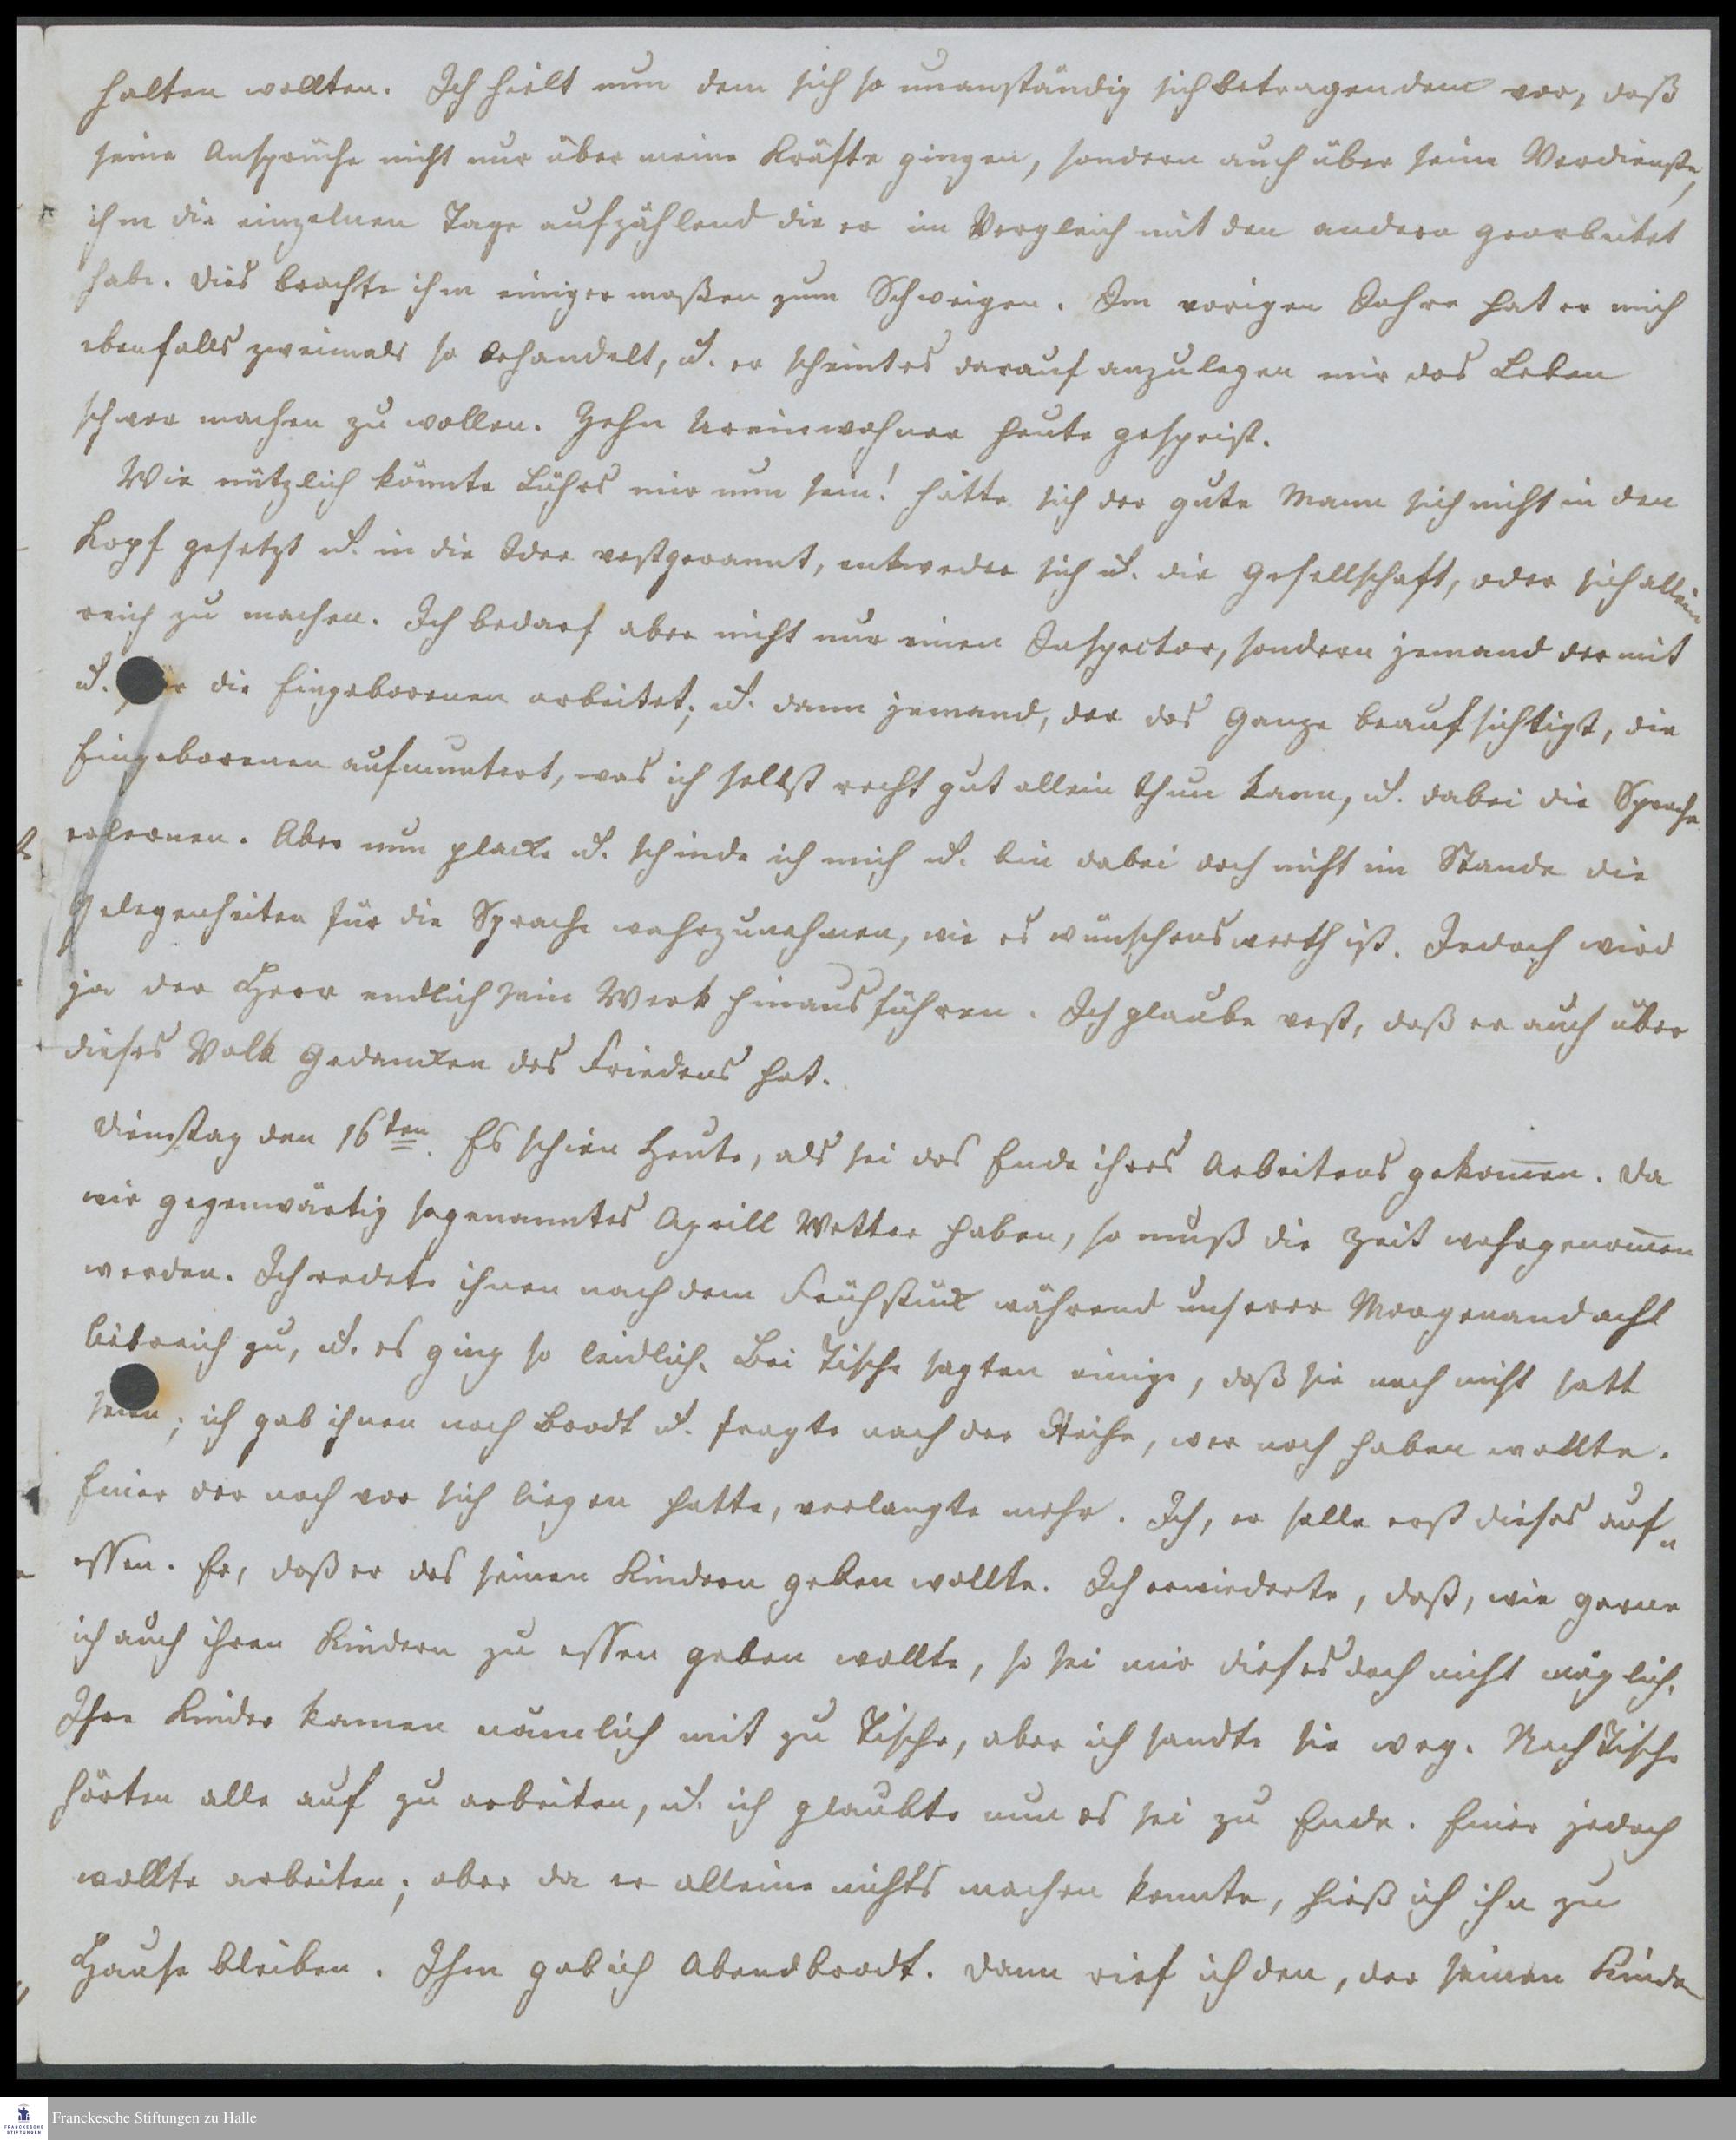 halten wollten. Ich hielt nun dem sich so unanständig sich betragendem vor, daß
seine Ansprüche nicht nur über meine Kräfte gingen, sondern auch über seine Verdienste,
ihm die einzelnen Tage aufzählend die er im Vergleich mit den andern gearbeitet
habe. Dies brachte ihm einiger maßen zum Schweigen. Im vorigen Jahre hat er mich
ebenfalls zweimals so behandelt, u. er scheint es darauf anzulegen mir das Leben
schwer machen zu wollen. Zehn Ureinwohner heute gespeist.
Wie nützlich könnte Lührs mir nun sein! hätte sich der gute Mann sich nicht in den
Kopf gesetzt u. in die Idee vestgerannt, entweder sich u. die Gesellschaft, oder sich allein
reich zu machen. Ich bedarf aber nicht nur einen Inspector, sondern jemand der mit
u. die Eingeborenen arbeitet; u. dann jemand, der das Ganze beaufsichtigt, die
Eingeborenen aufmuntert, was ich selbst recht gut allein thun kann, u. dabei die Sprache
erlernen. Aber nun placke u. schinde ich mich u. bin dabei doch nicht im Stande die
Gelegenheiten für die Sprache wahrzunehmen, wie es wünschenswerth ist. Jedoch wird
ja der Herr endlich sein Werk hinausführen. Ich glaube vest, daß er auch über
dieses Volk Gedancken des Friedens hat.
Dienstag den 16ten. Es schien Heute, als sei das Ende ihres Arbeitens gekom̅en. Da
wir gegenwärtig sogenanntes Aprill Wetter haben, so muß die Zeit wahrgenom̅en
werden. Ich redete ihnen nach dem Frühstück während unserer Morgenandacht
liebreich zu, u. es ging so leidlich. Bei Tische sagten einige, daß sie noch nicht satt
seien; ich gab ihnen noch Brodt u. fragte nach der Reihe, wer noch haben wollte.
Einer der noch vor sich liegen hatte, verlangte mehr. Ich, er solle erst dieses auf-
essen. Er, daß er das seinen Kindern geben wollte. Ich erwiederte, daß, wie gerne
ich auch ihren Kindern zu essen geben wollte, so sei mir dieses doch nicht möglich.
Ihre Kinder kamen nämlich mit zu Tische, aber ich sandte sie weg. Nach Tische
hörten alle auf zu arbeiten, u. ich glaubte nun es sei zu Ende. Einer jedoch
wollte arbeiten; aber da er alleine nichts machen konnte, hieß ich ihn zu
Hause bleiben. Ihm gab ich Abendbrodt. Dann rief ich den, der seinen Kindern
Franckesche Stiftungen zu Halle